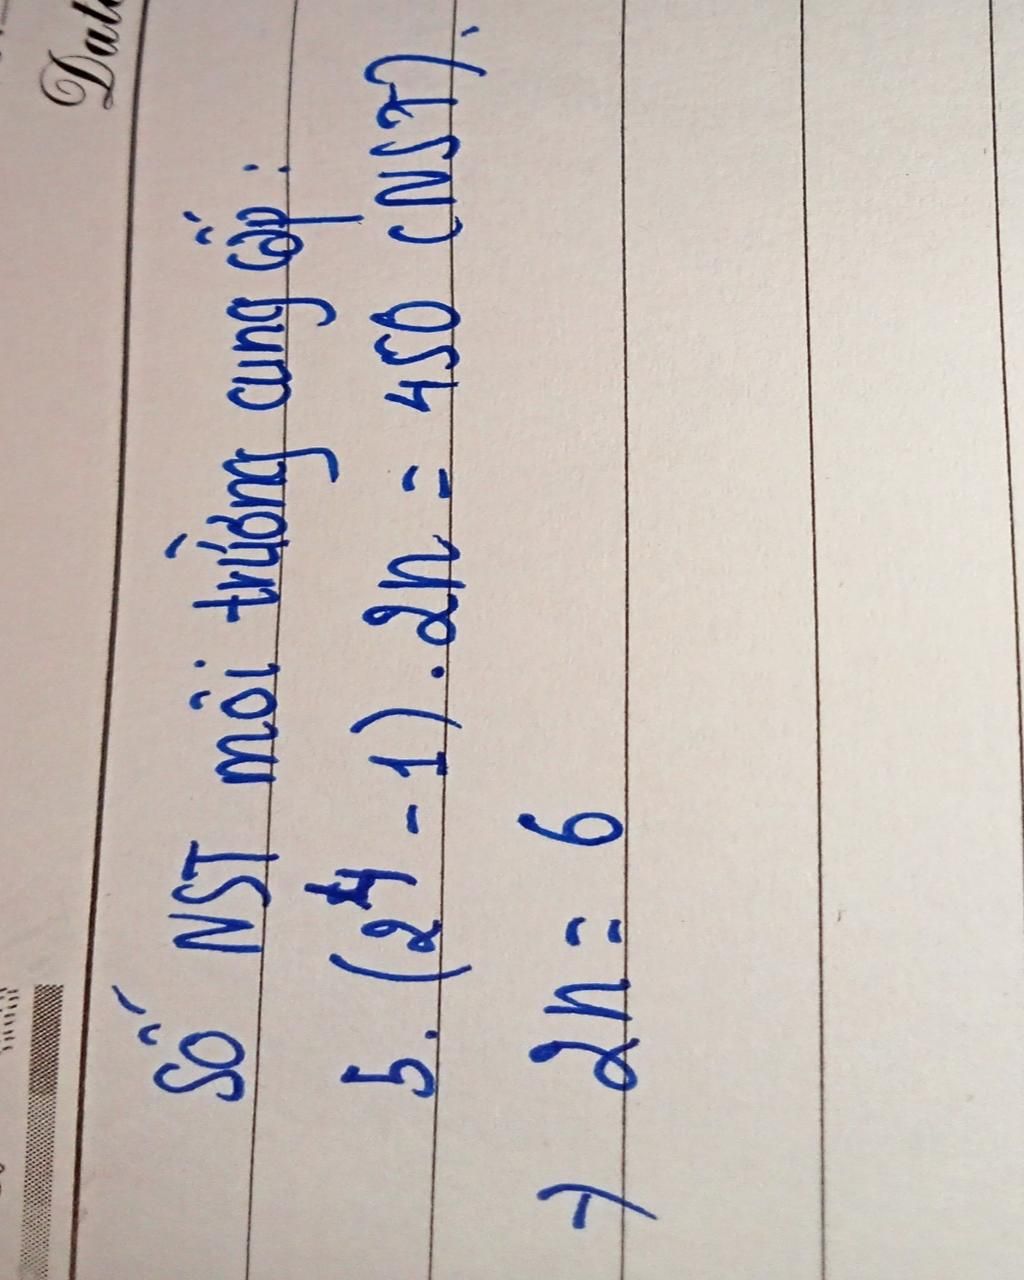 Date
Số NST môi trường cung cấp:
5. (2⁴ - 1). 2n = 450 (NST).
→ 2n = 6